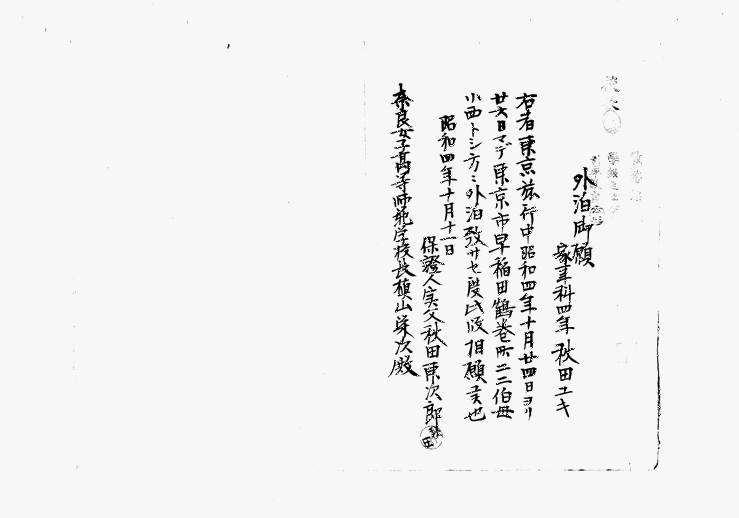 外泊御願
家事科四年 秋田ユキ
右者東京旅行中昭和四年十月廿四日ヨリ
廿六日マデ東京市早稲田鶴巻町二二伯母
小西トシ方ニ外泊致サセ度此段相願候也
昭和四年十月十一日
保證人実父秋田東次郎
奈良女子高等師範学校長槇山栄次殿